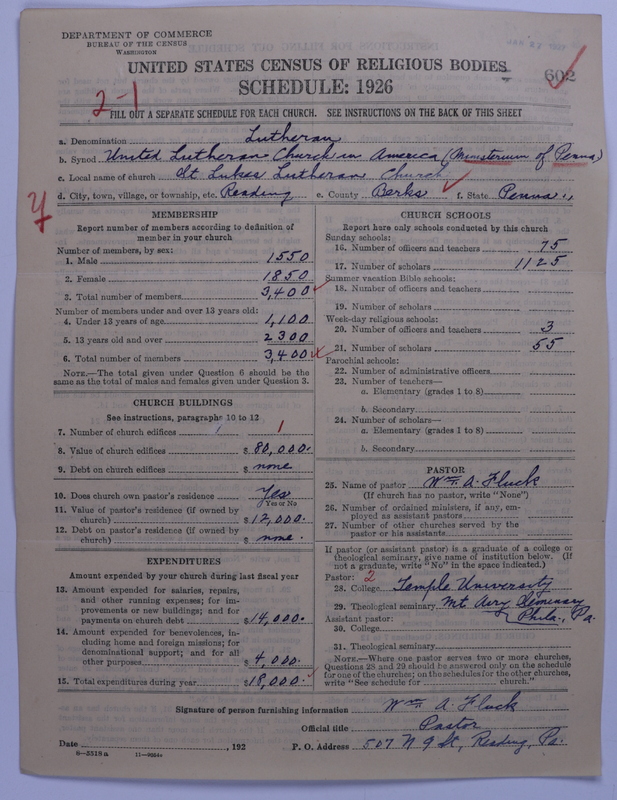 DEPARTMENT OF COMMERCE
BUREAU OF THE CENSUS
WASHINGTON
UNITED STATES CENSUS OF RELIGIOUS BODIES
602
SCHEDULE: 1926
2-1
FILL OUT A SEPARATE SCHEDULE FOR EACH CHURCH. SEE INSTRUCTIONS ON THE BACK OF THIS SHEET
a. Denomination Lutheran
b. Synod United Lutheran Church in America (Ministerium of Penna)
c. Local name of church St Lukes Lutheran Church
d. City, town, village, or township, etc. Reading e. County Berks f. State Penna.,
MEMBERSHIP
Report number of members according to definition of
member in your church
Number of members, by sex:
1. Male 1550
2. Female 1850
3. Total number of members 3,400
Number of members under and over 13 years old:
4. Under 13 years of age 1,100
5. 13 years old and over 2300
6. Total number of members 3,400
NOTE.—The total given under Question 6 should be the
same as the total of males and females given under Question 3.
CHURCH BUILDINGS
See instructions, paragraphs 10 to 12
7. Number of church edifices 1 1
8. Value of church edifices $ 80,000.
9. Debt on church edifices $ none
10. Does church own pastor's residence Yes
Yes or No
11. Value of pastor's residence (if owned by
church) $ 12,000.
12. Debt on pastor's residence (if owned by
church) $ none.
EXPENDITURES
Amount expended by your church during last fiscal year
13. Amount expended for salaries, repairs,
and other running expenses; for im-
provements or new buildings; and for
payments on church debt $ 14,000.
14. Amount expended for benevolences, in-
cluding home and foreign missions; for
denominational support; and for all
other purposes $ 4,000.
15. Total expenditures during year $ 18,000.
CHURCH SCHOOLS
Report here only schools conducted by this church
Sunday schools:
16. Number of officers and teachers 75
17. Number of scholars 1125
Summer vacation Bible schools:
18. Number of officers and teachers
19. Number of scholars
Week-day religious schools:
20. Number of officers and teachers 3
21. Number of scholars 55
Parochial schools:
22. Number of administrative officers
23. Number of teachers—
a. Elementary (grades 1 to 8)
b. Secondary
24. Number of scholars—
a. Elementary (grades 1 to 8)
b. Secondary
PASTOR
25. Name of pastor Wm. A. Fluck
(If church has no pastor, write "None")
26. Number of ordained ministers, if any, em-
ployed as assistant pastors
27. Number of other churches served by the
pastor or his assistants
If pastor (or assistant pastor) is a graduate of a college or
theological seminary, give name of institution below. (If
not a graduate, write "No" in the space indicated.)
Pastor: 2
28. College Temple University
29. Theological seminary Mt Airy Seminary
Assistant pastor: Phila., Pa.
30. College
31. Theological seminary
NOTE.—Where one pastor serves two or more churches,
Questions 28 and 29 should be answered only on the schedule
for one of the churches; on the schedules for the other churches,
write "See schedule for church."
Signature of person furnishing information Wm A Fluck
Official title Pastor
Date , 192 P. O. Address 507 N 9 St, Reading, Pa.
8-5518a